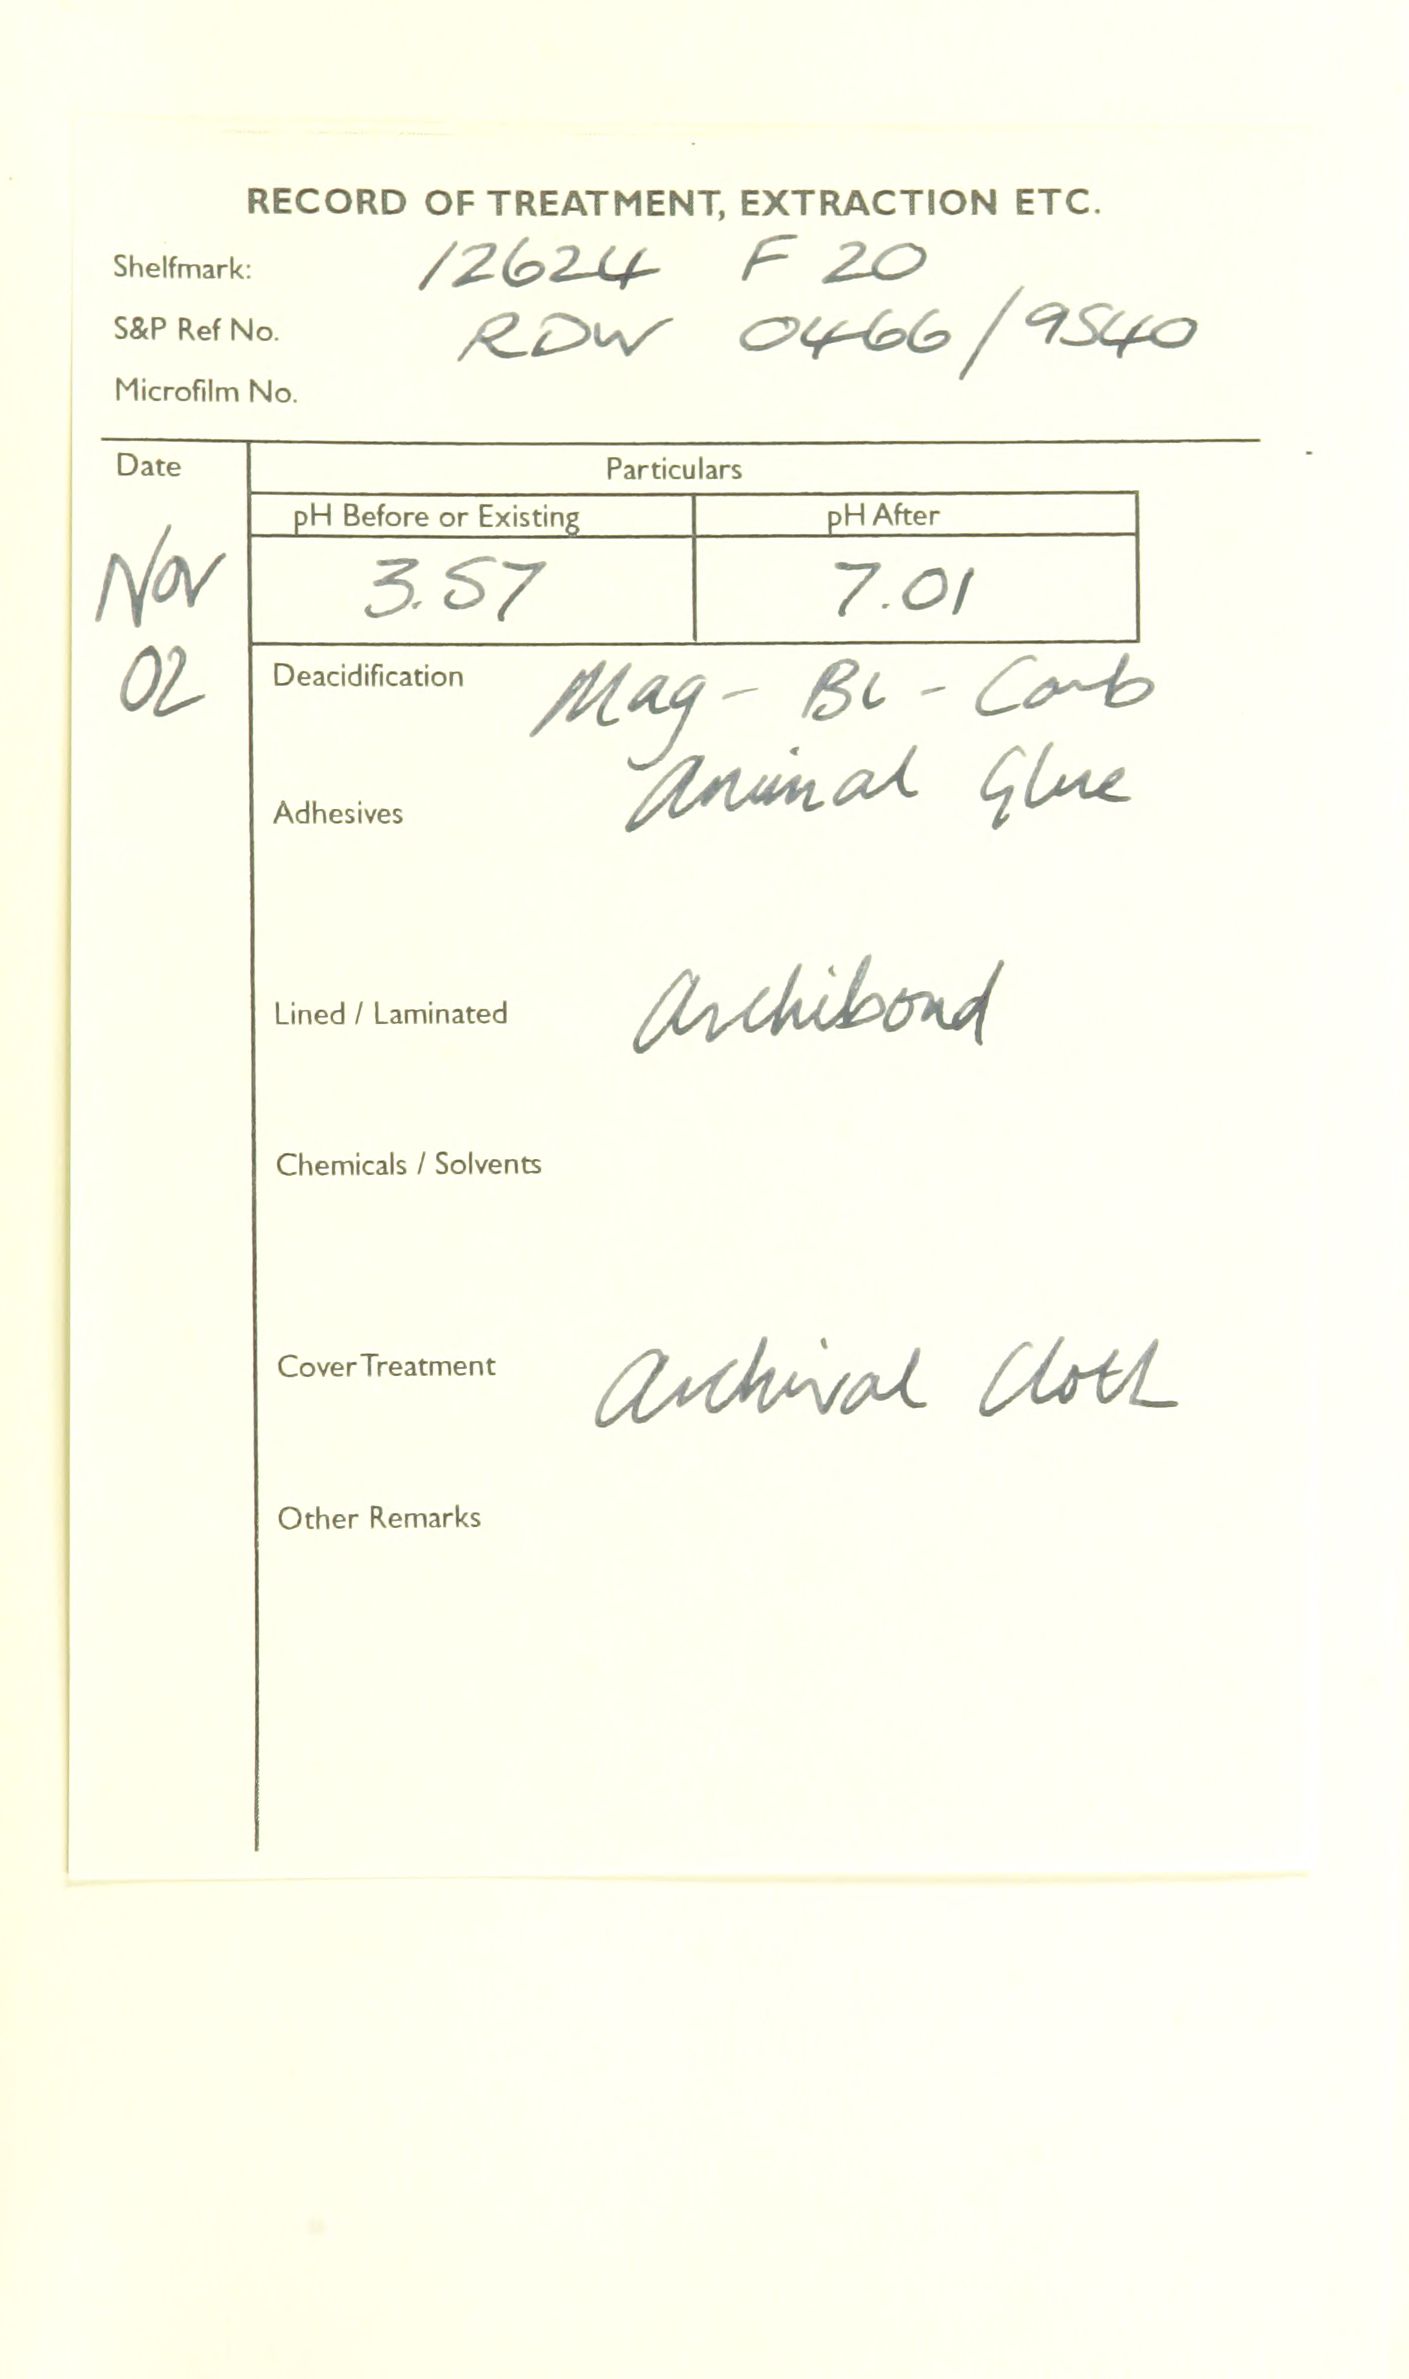 RECORD OF TREATMENT, EXTRACTION ETC.
Shelfmark: 12624 F 20
S&P Ref No. RDW 0466/9540
Microfilm No.
Date Particulars
pH Before or Existing pH After
Nov 3.57 7.01
02
Deacidification Mag-Bi-Carb
Adhesives Animal Glue
Lined / Laminated Archibond
Chemicals / Solvents
Cover Treatment Archival Cloth
Other Remarks